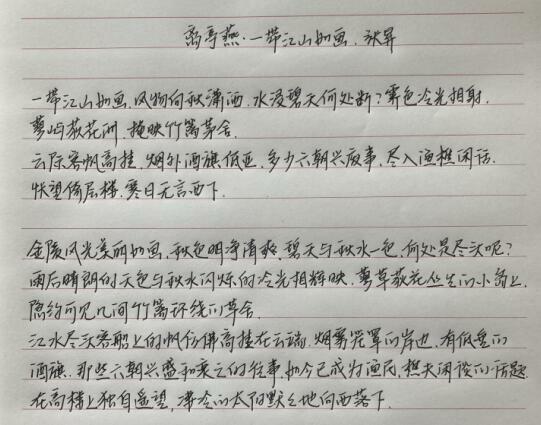 离亭燕·一带江山如画. 张昇
一带江山如画,风物向秋潇洒.水浸碧天何处断?霁色冷光相射.
蓼屿荻花洲,掩映竹篱茅舍.
云际客帆高挂,烟外酒旗低亚,多少六朝兴废事,尽入渔樵闲话.
怅望倚层楼,寒日无言西下.
金陵风光美丽如画,秋色明净清爽.碧天与秋水一色,何处是尽头呢?
雨后晴朗的天色与秋水闪烁的冷光相辉映.蓼草荻花丛生的小岛上,
隐约可见几间竹篱环绕的草舍.
江水尽头客船上的帆仿佛高挂在云端,烟雾笼罩的岸边,有低垂的
酒旗.那些六朝兴盛和衰亡的往事,如今已成为渔民,樵夫闲谈的话题
在高楼上独自遥望,凄冷的太阳默默地向西落下.